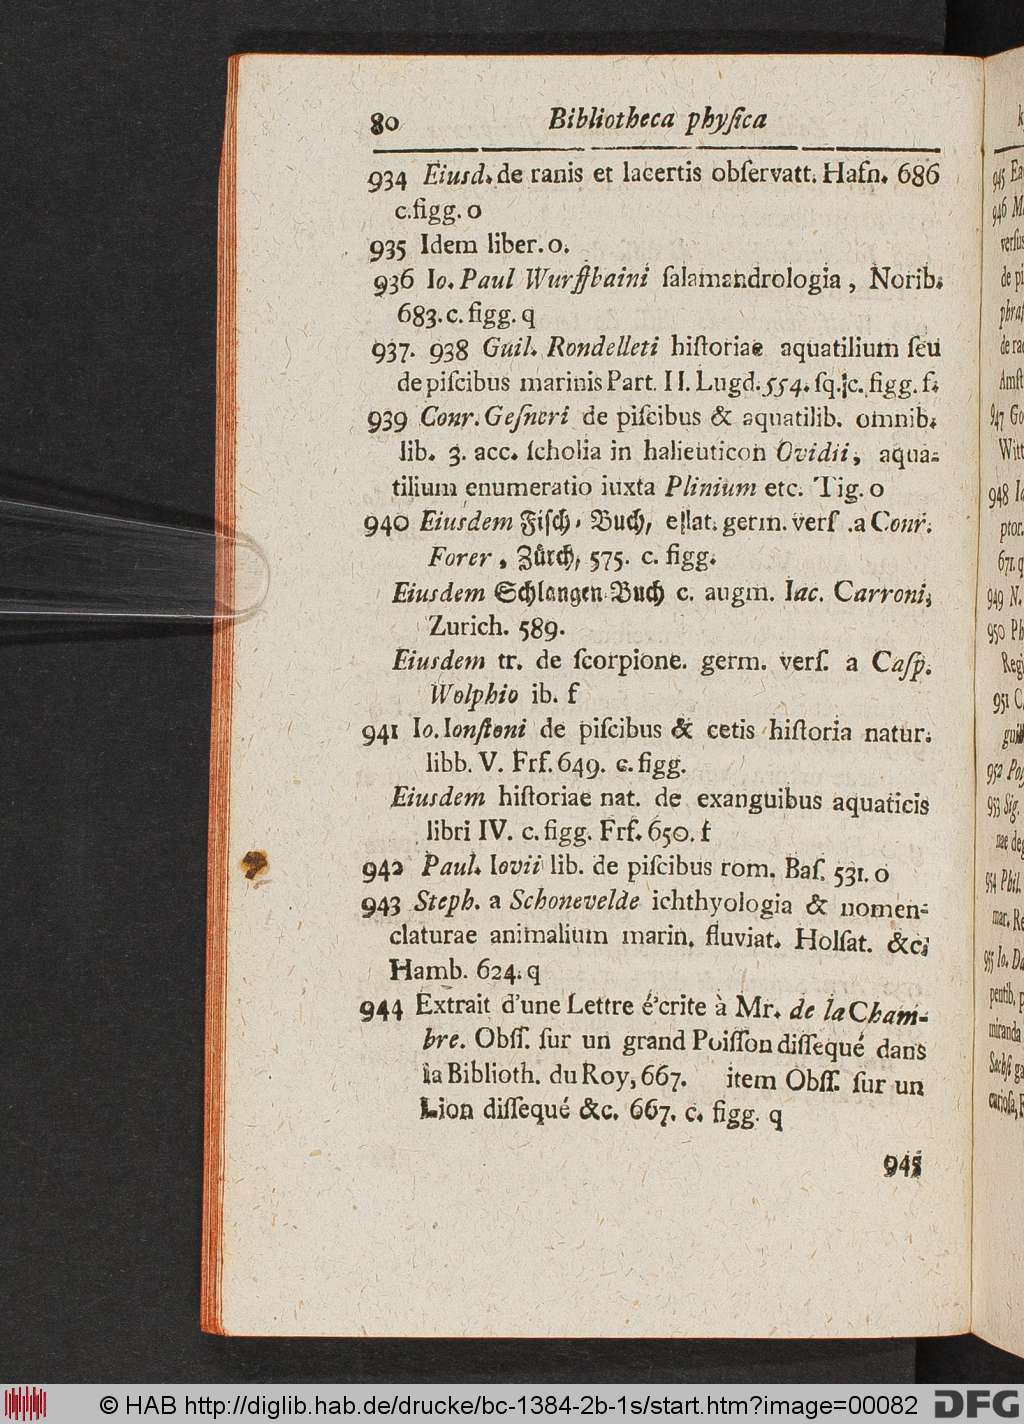 80 Bibliotheca phyſica
934 Eiusd. de ranis et lacertis obſervatt. Hafn. 686
c.figg. o
935 Idem liber. o.
936 Io. Paul Wurffbaini ſalamandrologia, Norib.
683. c. figg. q
937. 938 Guil. Rondelleti hiſtoriae aquatilium ſeu
de piſcibus marinis Part. II. Lugd. 554. ſq. c. figg. f.
939 Conr. Geſneri de piſcibus & aquatilib. omnib.
lib. 3. acc. ſcholia in halieuticon Ovidii, aqua-
tilium enumeratio iuxta Plinium etc. Tig. o
940 Eiusdem Fiſch-Buch, e lat. germ. verſ. a Conr.
Forer, Zürch, 575. c. figg.
Eiusdem Schlangen-Buch c. augm. Iac. Carroni,
Zurich. 589.
Eiusdem tr. de ſcorpione. germ. verſ. a Caſp.
Wolphio ib. f
941 Io. Ionſtoni de piſcibus & cetis hiſtoria natur.
libb. V. Frf. 649. c. figg.
Eiusdem hiſtoriae nat. de exanguibus aquaticis
libri IV. c. figg. Frf. 650. f
942 Paul. Iovii lib. de piſcibus rom. Baſ. 531. o
943 Steph. a Schonevelde ichthyologia & nomen-
claturae animalium marin. fluviat. Holſat. &c.
Hamb. 624. q
944 Extrait d'une Lettre é'crite à Mr. de la Cham-
bre. Obſſ. ſur un grand Poiſſon diſſequé dans
la Biblioth. du Roy, 667. item Obſſ. ſur un
Lion diſſequé &c. 667. c. figg. q
945
945
946 M.
verſus
de pi
de ra
Amſt
947 Go
Witt
948
ptor.
671. q
949 N.
950 Ph
Reg
951 C.
952 Poſ
953 Sig.
nae deg
954 Phil.
mar. Re
955 Io. Da
pentib. p
miranda
Sachſ
curioſa, F
© HAB http://diglib.hab.de/drucke/bc-1384-2b-1s/start.htm?image=00082
DFG